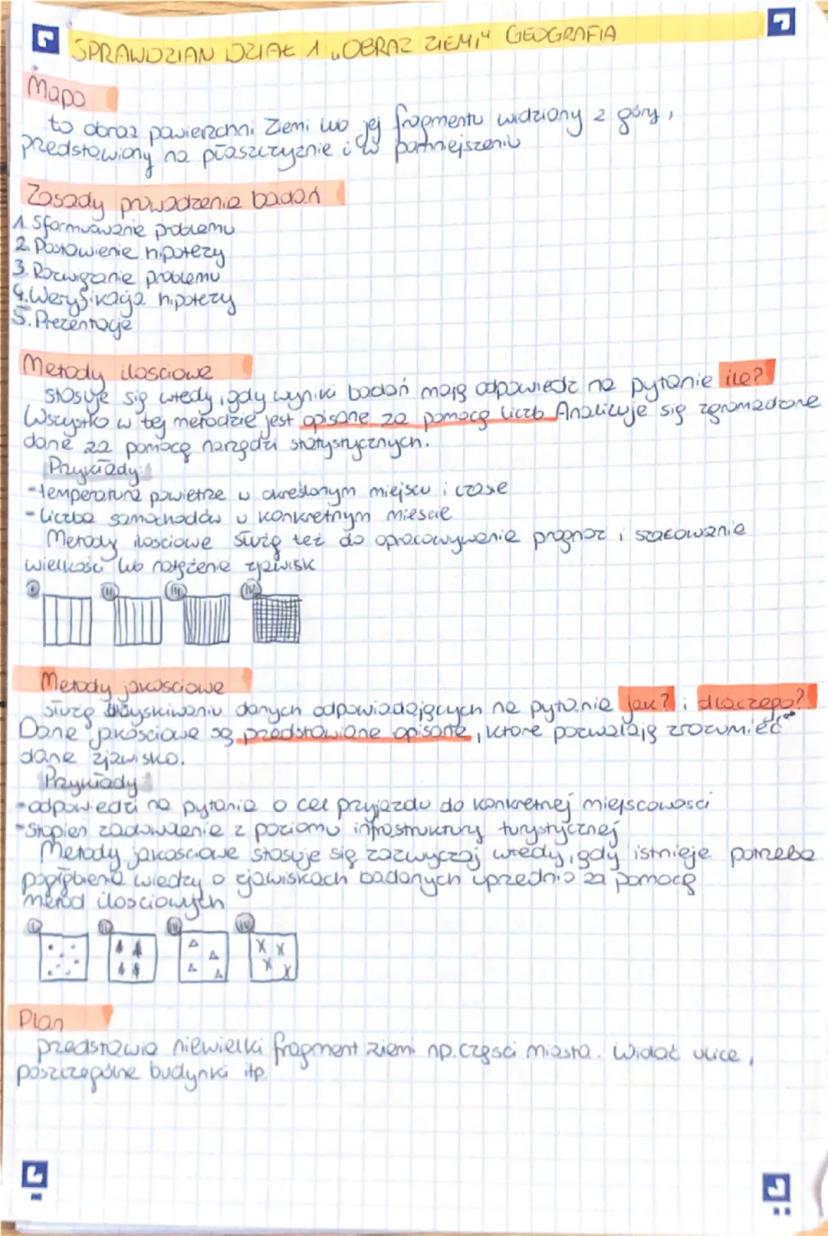 SPRAWDZIAN DZIAŁ 1 „OBRAZ ZIEMI” GEOGRAFIA
Mapa
to obraz powierzchni Ziemi lub jej fragmentu widziany z góry,
przedstawiony na płaszczyźnie i w pomniejszeniu
Zasady prowadzenia badań
1. Sformuowanie problemu
2. Postawienie hipotezy
3. Rozwiązanie problemu
4. Weryfikacja hipotezy
5. Prezentacje
Metody ilosciowe
stosuje się wtedy, gdy wyniki badań mają odpowiedź na pytanie ile?
Wszystko w tej metodzie jest opisane za pomocą liczb Analizuje się zgromadzone
dane za pomocą narzędzi statystycznych.
Przykłady:
-temperatura powietrza w określonym miejscu i czasie
-liczba samochodów w konkretnym miescie
Metody ilosciowe służą też do opracowywania prognoz i szacowania
wielkości lub natężenia zjawisk
I II III IV
Metody jakosciowe
służą uzyskiwaniu danych odpowiadających na pytania jak? i dlaczego?
Dane jakościowe są przedstawiane opisane, które pozwalają zrozumieć
dane zjawisko.
Przykłady
-odpowiedzi na pytania o cel przyjazdu do konkretnej miejscowosci
-stopien zadowolenia z poziomu infrastruktury turystycznej
Metody jakosciowe stosuje się zazwyczaj wtedy, gdy istnieje potrzeba
pogłębiena wiedzy o zjawiskach badanych uprzednio za pomocą
metod ilosciowych
I II III IV
Plan
przedstawia niewielki fragment ziemi np. części miasta. Widać ulice,
poszczególne budynki itp